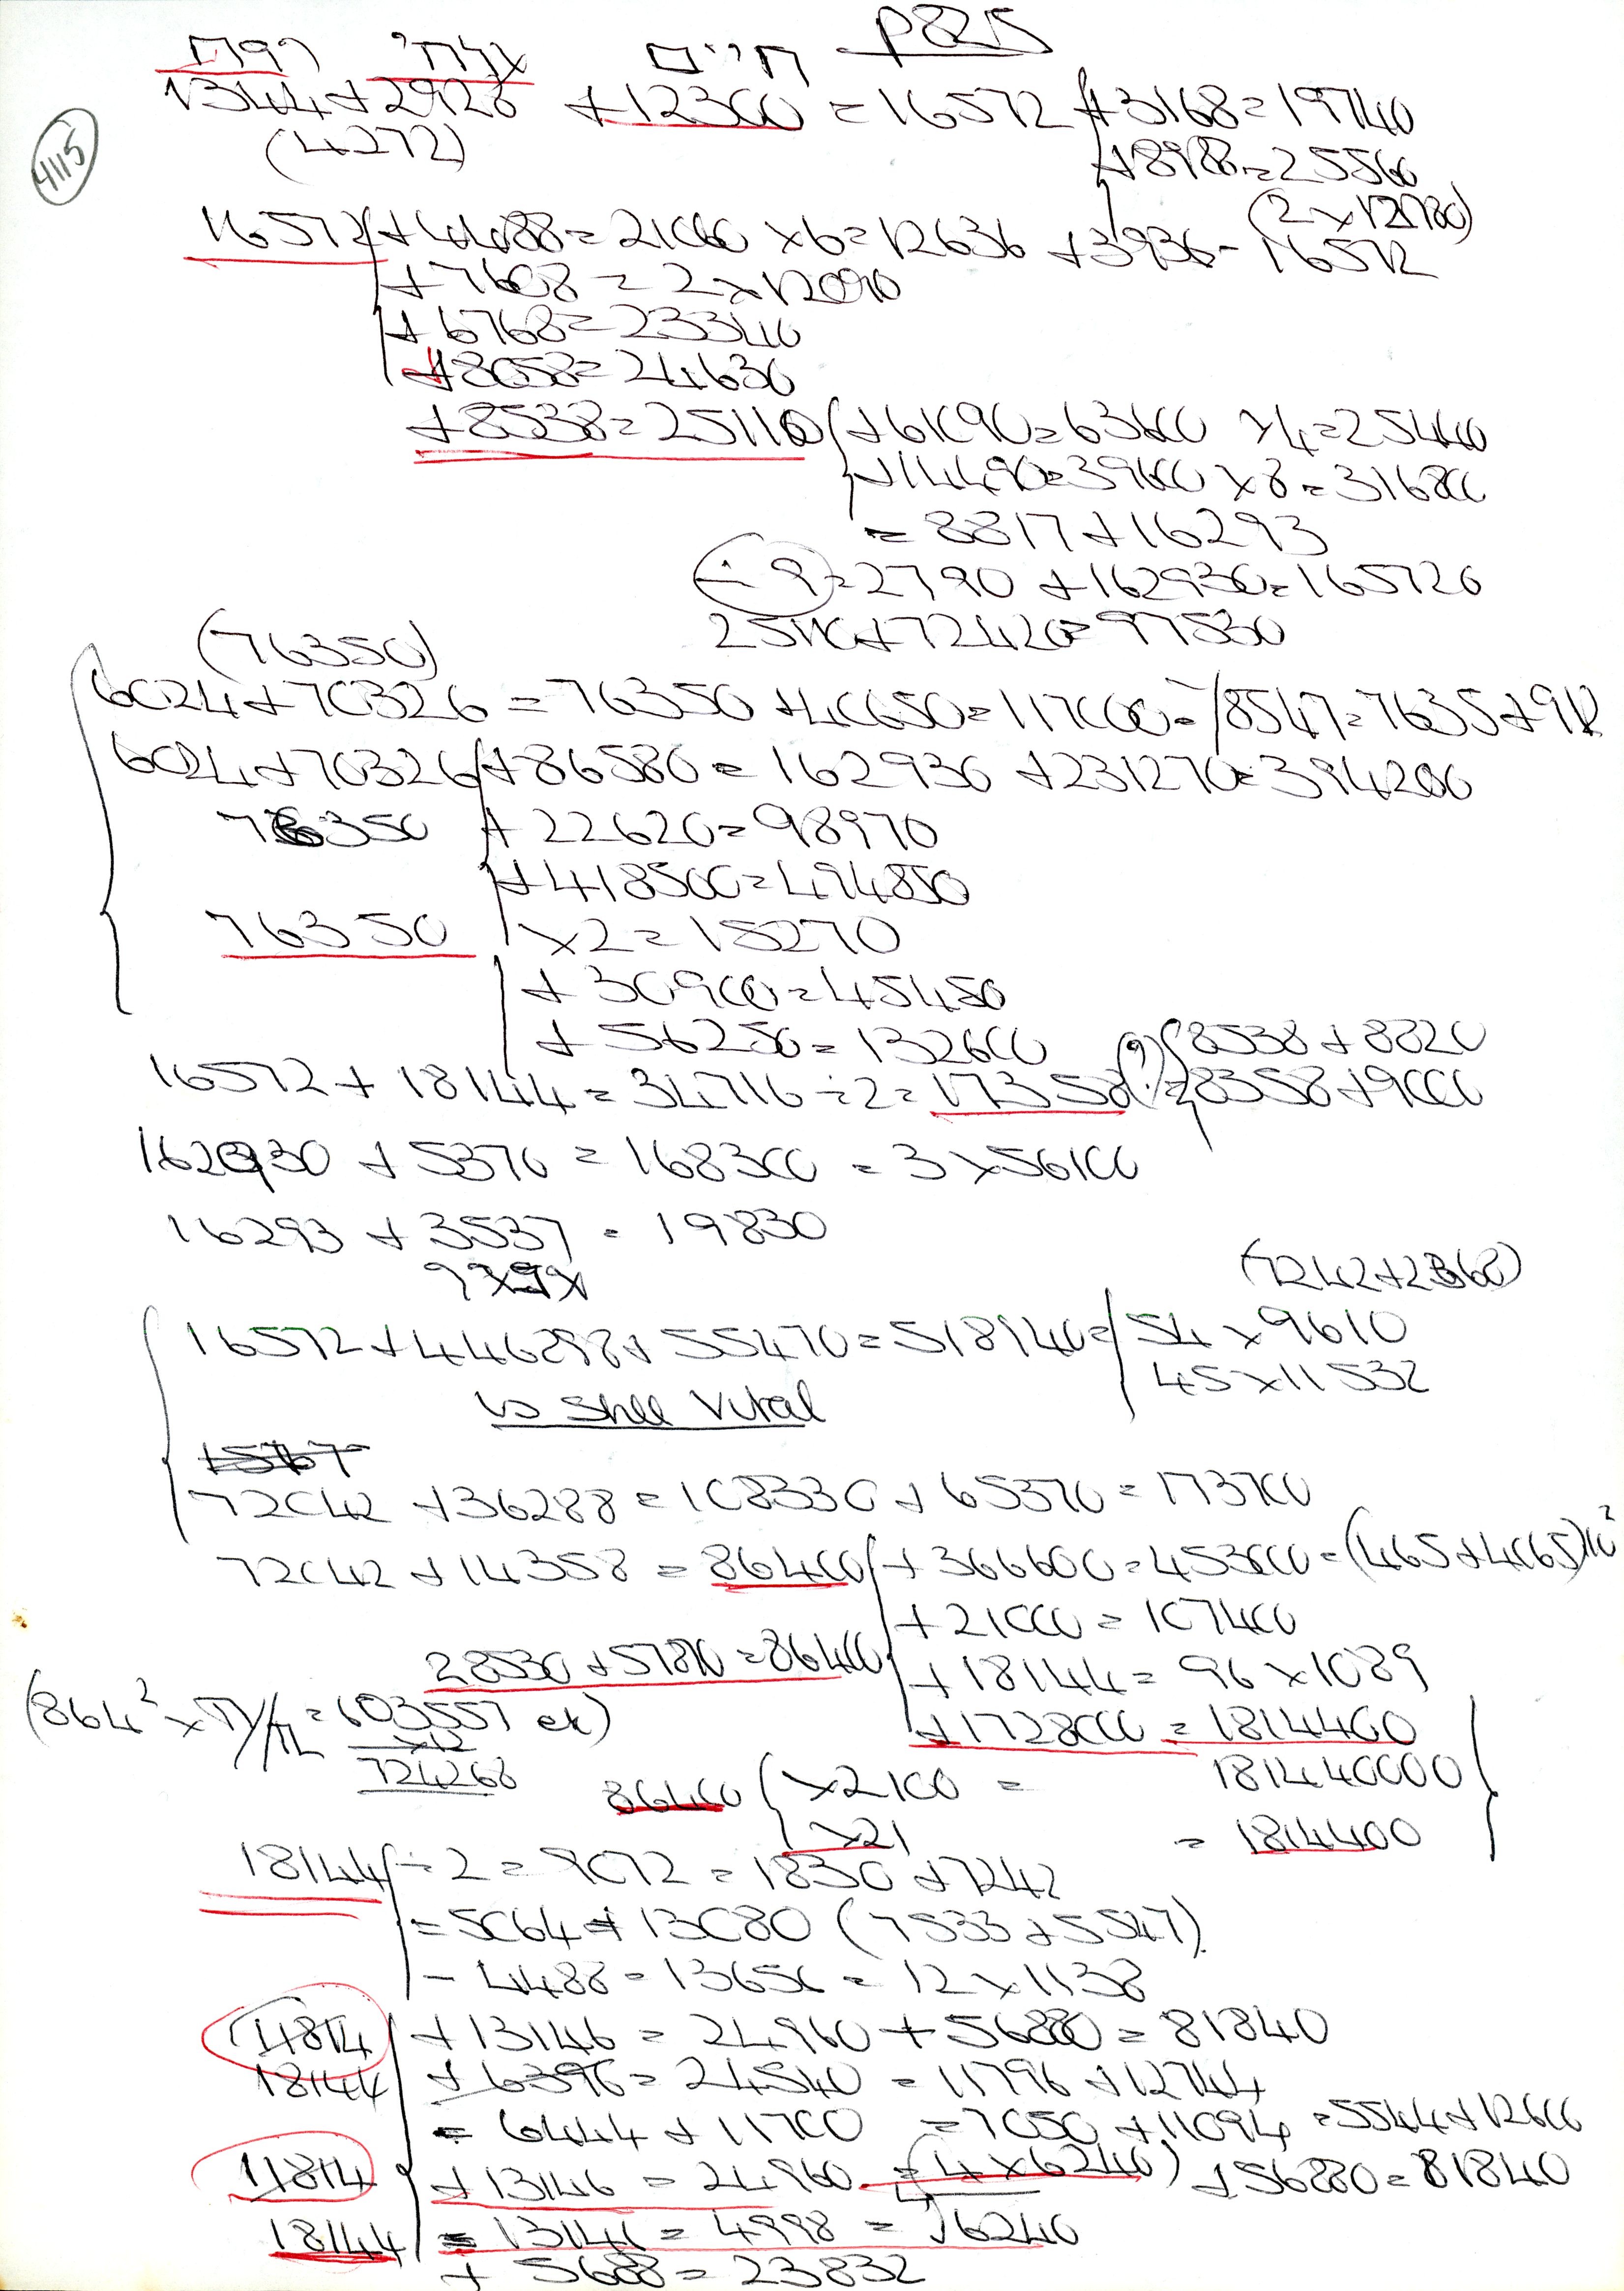 P825
חיים
4115
1344+2928 +12300 = 16572 +3168=19740
(4272)
+8988=25560
(2×12780)
16572 +4488=21060 ×6=12636 +3936=16572
+7608 = 2×12090
+6768=23340
+8058=24630
+8538=25110 +61090=63600 ×4=25440
+14490=39600 ×8=316800
= 8817+16293
÷9=2790 +162930=165720
25110+72420=97530
(76350)
6024+70326 = 76350 +40650=117000=/8547=7635+912
6024+70326 +86580=162930 +231270=394200
76350 +22620=98970
+418500=494850
76350 ×2=15270
+30900=45450
+56250=132600
8538+8820
16572+18144=34716÷2=17358 (9) =8358+9000
162930 +5370 = 168300 = 3×56100
16293 + 3537 = 19830
(7242+2368)
16572+446298+55470=518140= 54×9610
45×11532
↳ Still Vital
72042 +36288=108330+65370=173700
72042 +14358 = 86400 +366600=453000=(465+4065)10²
+21000=107400
28530+57870=86400
+18144=96×1089
(864²×π/4=603557 ek)
×12
724268
+1728000=1814400
86400 ×2100 = 181440000
×21 = 1814400
18144 ÷2=9072=1830+7242
=5064+13080 (7533+5547)
-4488=13656=12×1138
11814 +13146=24960+56880=81840
18144 +6396=24540=11796+12744
=6444+11700 =7050+11094 =5544+12600
11814 +13146=24960 =(4×6240) +56880=81840
18144 =13146=4998=√6240
+5688=23832